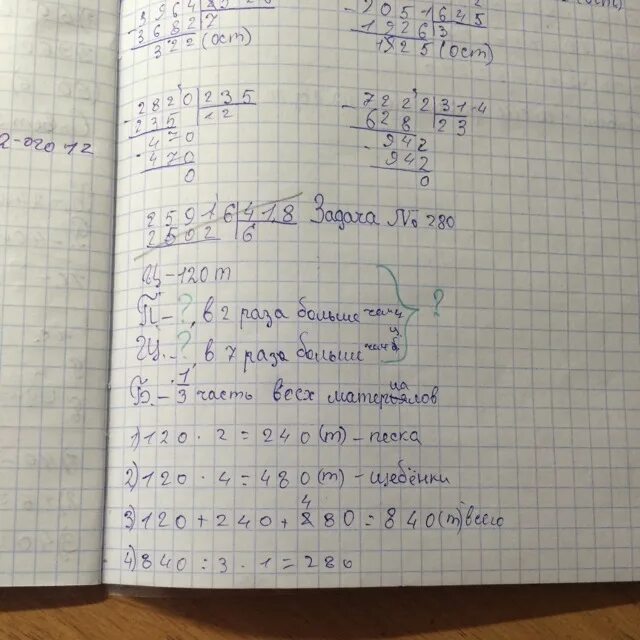 39648
36827
322 (ост)
2051645
19263
1825 (ост)
2-ого 12
2820 235
235 12
470
470
0
7222 314
628 23
942
942
0
25916 418
2502 6
Задача № 280
Ц - 120 т
П. - ?, в 2 раза больше чем ц
Щ. - ? в 7 раза больше чем ц
?
Б. - 1/3 часть всех материалов
1) 120 · 2 = 240 (т) - песка
2) 120 · 4 = 480 (т) - щебёнки
3) 120 + 240 + 480 = 840 (т) всего
4) 840 : 3 · 1 = 280